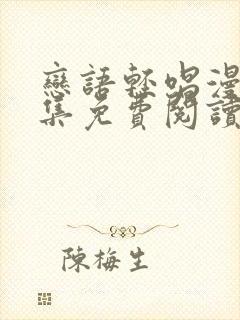 戀語輕唱漫
集免費閱讀
陳梅生